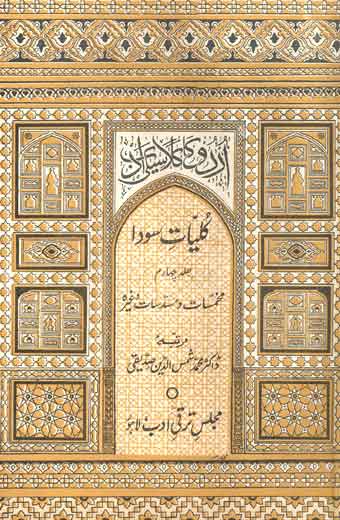 اُردو کا کلاسیکی ادب
کلیّات سودا
جلد چہارم
مخمسات و مسدسات وغیرہ
مرتبہ
ڈاکٹر محمد شمس الدین صدیقی
مجلس ترقی ادب لاہور